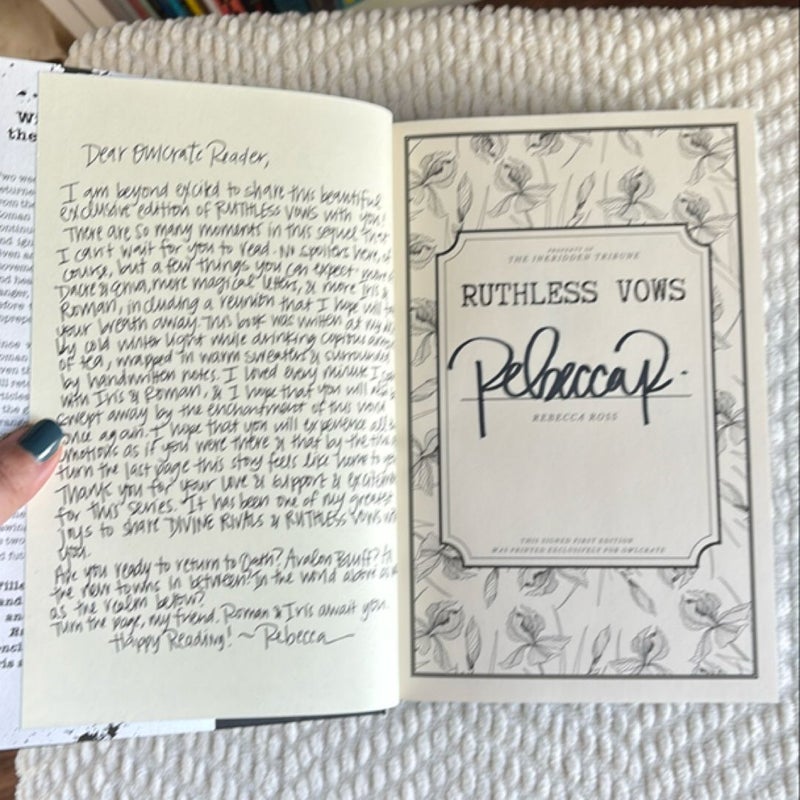 Dear OWLCrate Reader,
I am beyond excited to share this beautiful
exclusive edition of RUTHLESS VOWS with you!
There are so many moments in this sequel that
I can't wait for you to read. No spoilers here, of
course, but a few things you can expect: more
Dacre & Enva, more magical letters, & more Iris &
Roman, including a reunion that I hope will
your breath away. This book was written at my
by cold winter light while drinking copious
of tea, wrapped in warm sweaters & surrounded
by handwritten notes. I loved every minute I
with Iris & Roman, & I hope that you will
swept away by the enchantment of this world
once again. I hope that you will experience all
emotions as if you were there & that by the
turn the last page this story feels like home to
Thank you for your love & support & excitement
for this series. It has been one of my greatest
joys to share DIVINE RIVALS & RUTHLESS VOWS
you.
Are you ready to return to Oath? Avalon Bluff?
the new towns in between? In the world above
as the realm below?
Turn the page, my friend. Roman & Iris await you.
Happy Reading! ~Rebecca
PROPERTY OF
THE INKRIDDEN TRIBUNE
RUTHLESS VOWS
RebeccaR.
REBECCA ROSS
THIS SIGNED FIRST EDITION
WAS PRINTED EXCLUSIVELY FOR OWLCRATE